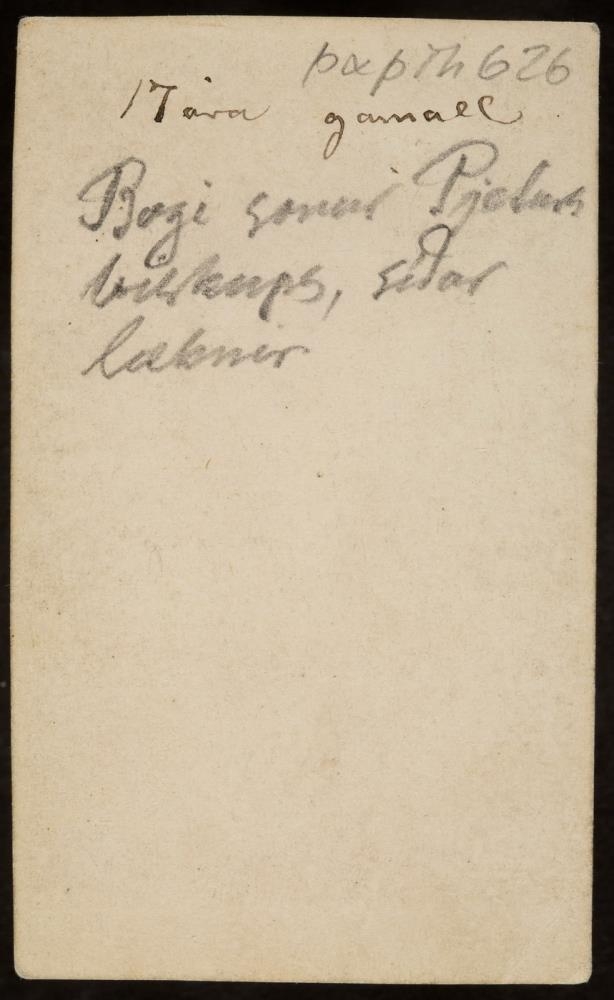 pxpTh 626
17 ára gamall
Bogi sonur Pjeturs
biskups, síðar
læknir